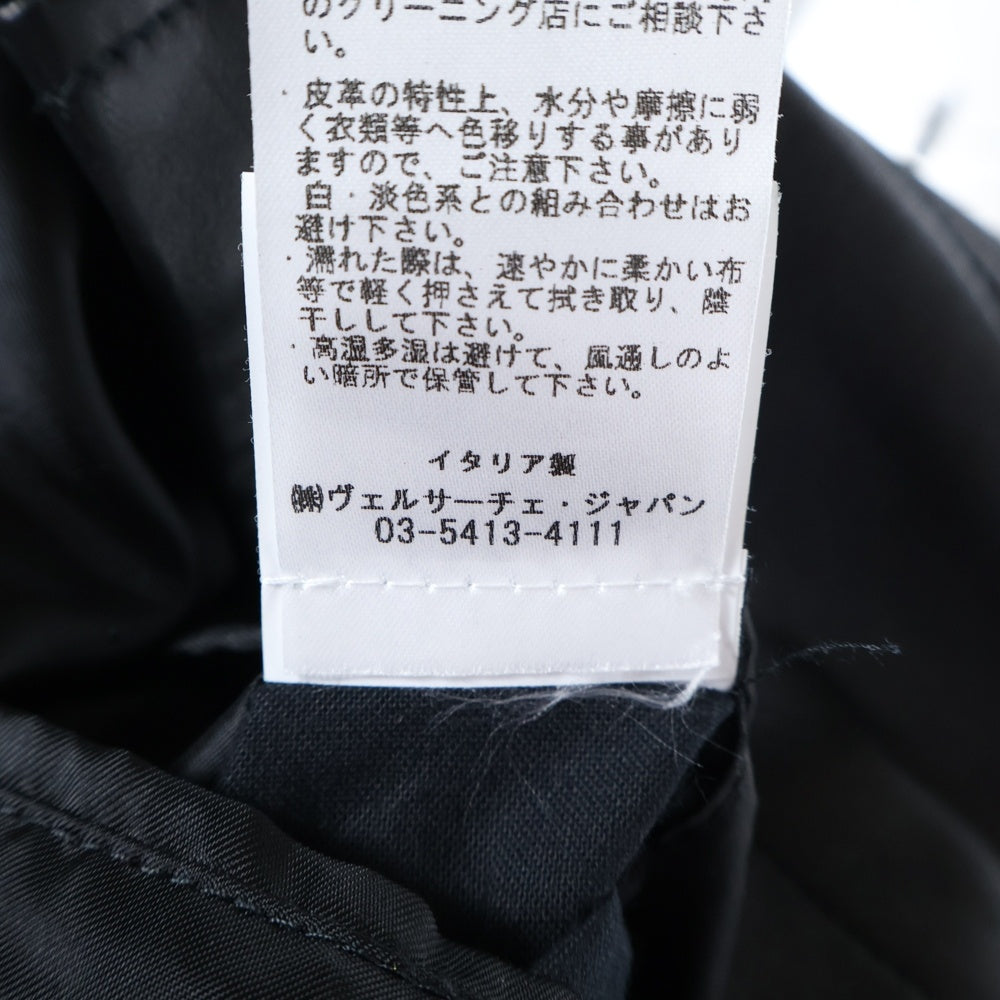 のクリーニング店にご相談下さ
い。
・皮革の特性上、水分や摩擦に弱
く衣類等へ色移りする事があり
ますので、ご注意下さい。
白・淡色系との組み合わせはお
避け下さい。
・濡れた際は、速やかに柔かい布
等で軽く押さえて拭き取り、陰
干しして下さい。
・高温多湿は避けて、風通しのよ
い暗所で保管して下さい。
イタリア製
㈱ヴェルサーチェ・ジャパン
03-5413-4111